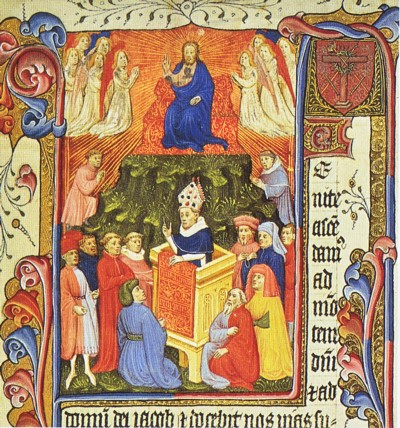 E
nite
ascē
damꝰ
ad
mō
tem
dnī
⁊ ad
domū dei iacob ⁊ docebit nos vias su-